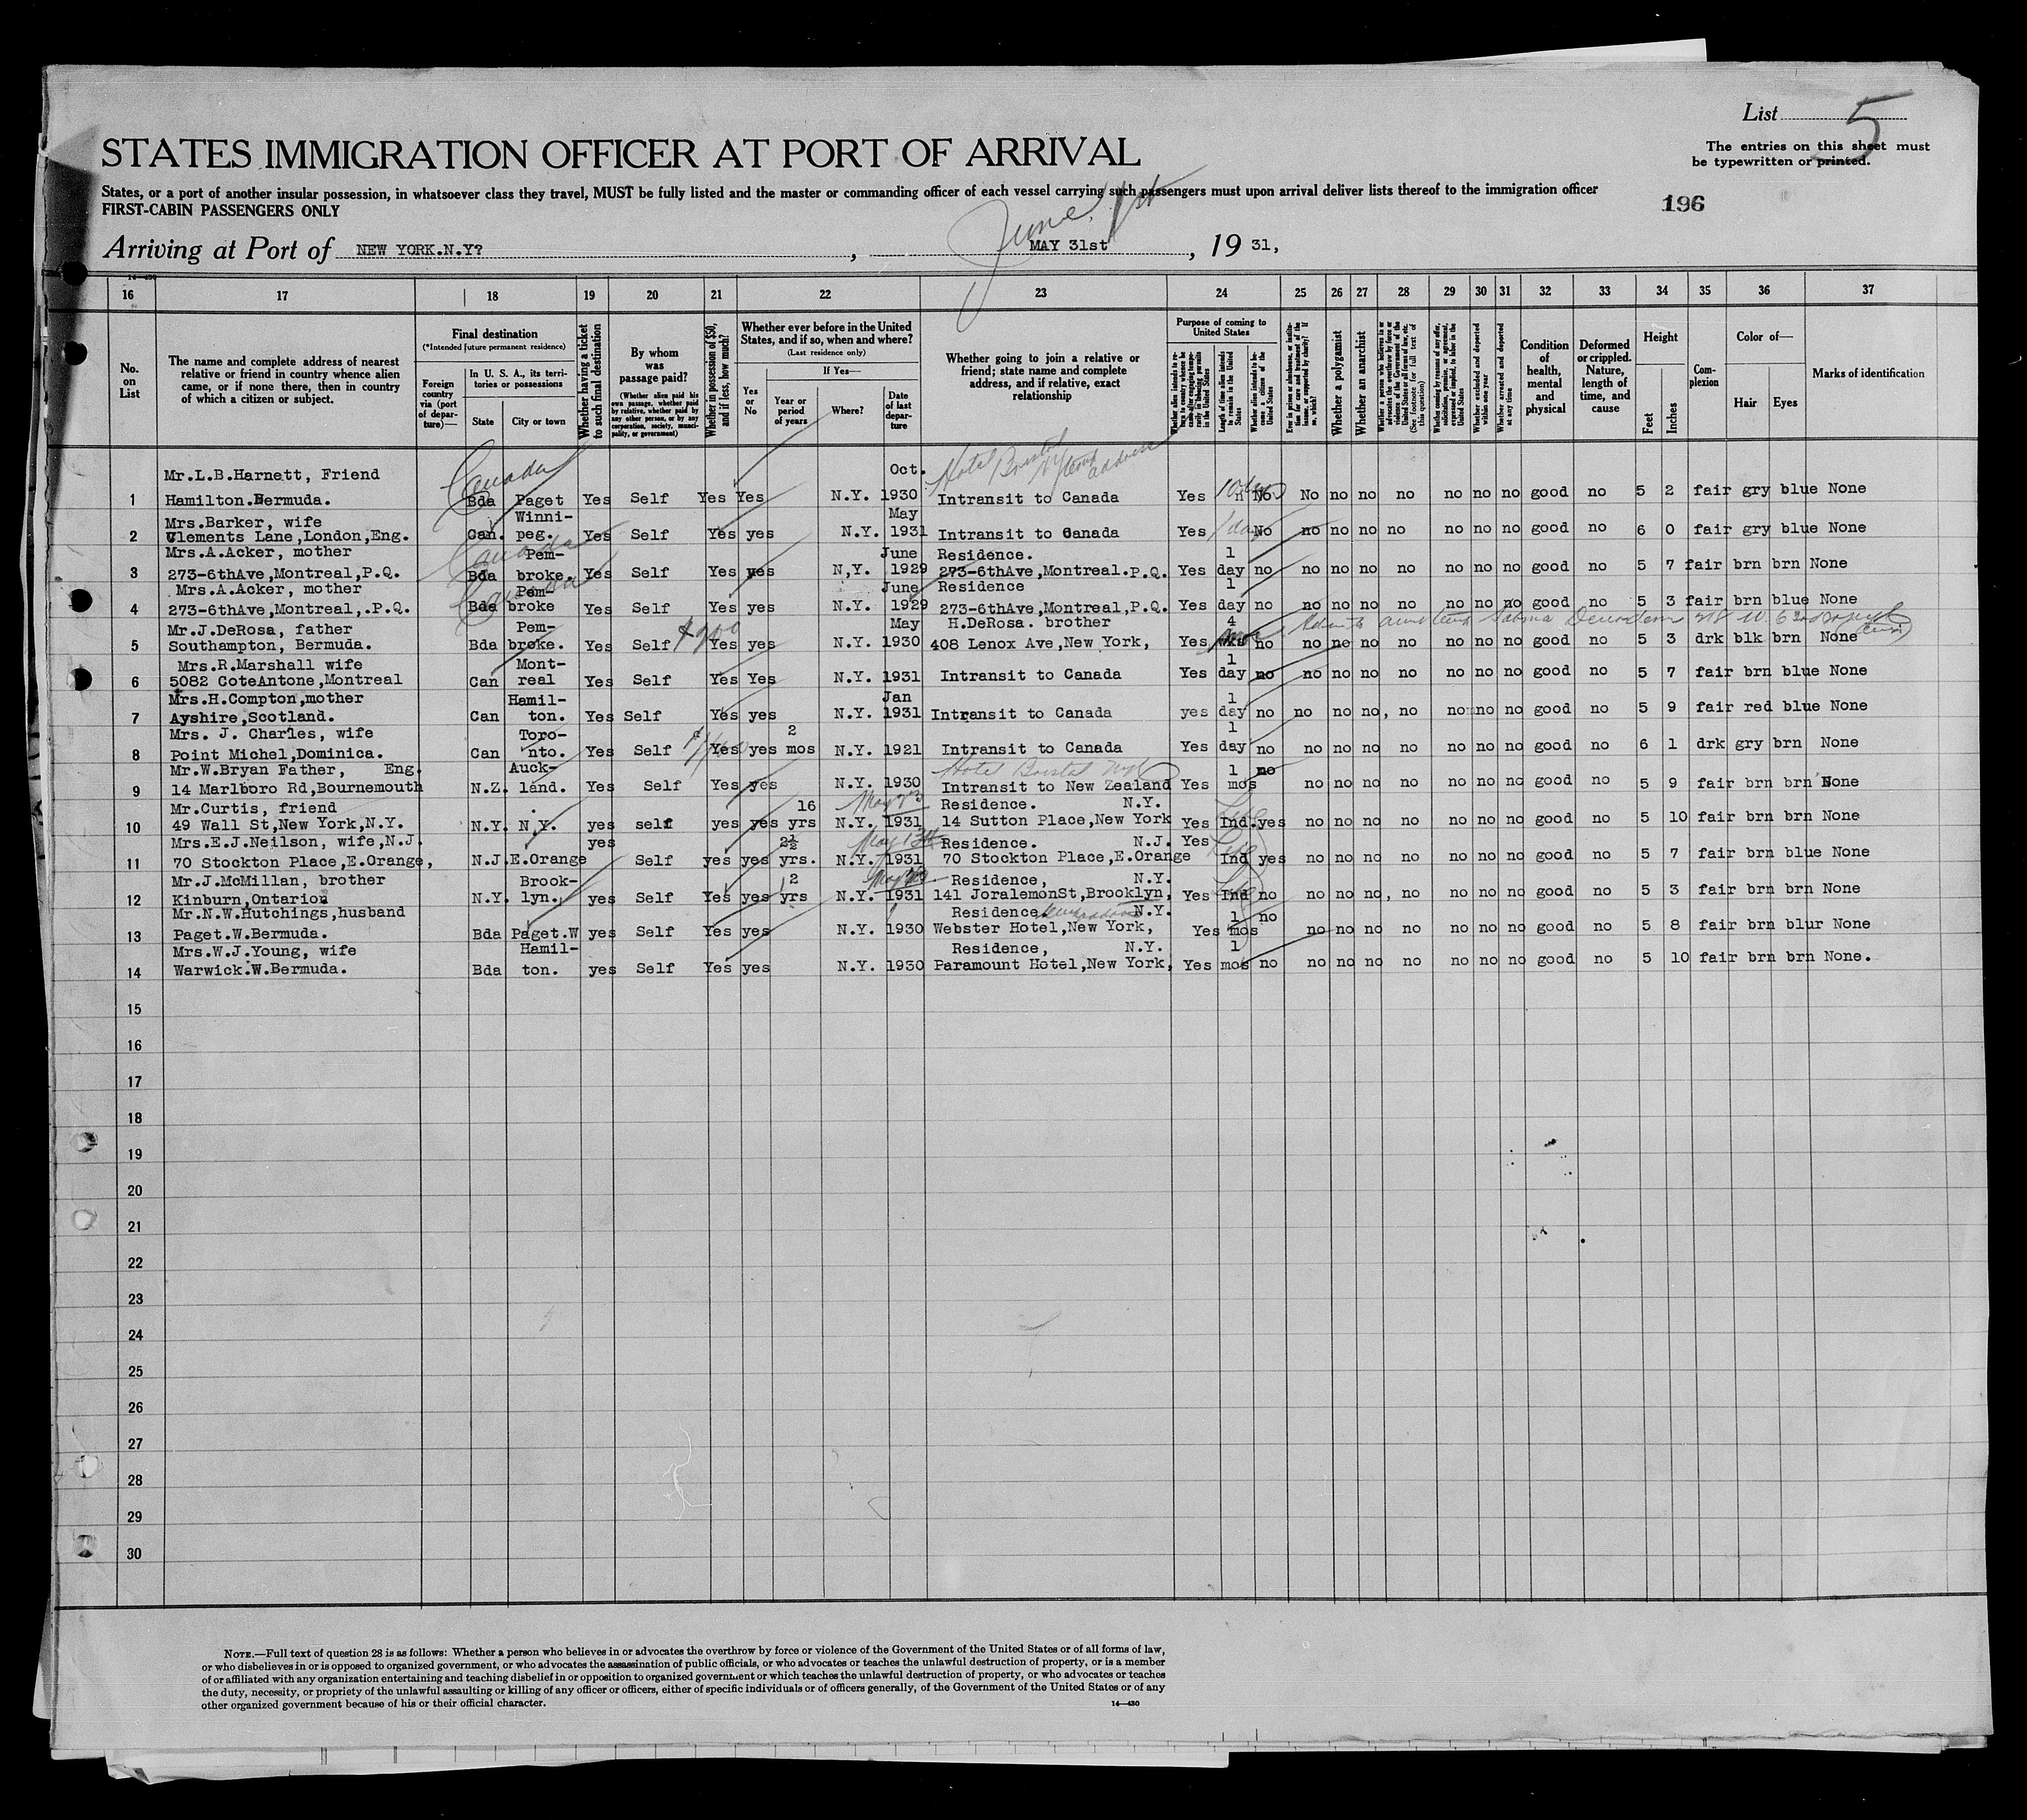 List 5
The entries on this sheet must
be typewritten or printed.
STATES IMMIGRATION OFFICER AT PORT OF ARRIVAL
States, or a port of another insular possession, in whatsoever class they travel, MUST be fully listed and the master or commanding officer of each vessel carrying such passengers must upon arrival deliver lists thereof to the immigration officer
FIRST-CABIN PASSENGERS ONLY
196
June 1st
Arriving at Port of NEW YORK.N.Y? , MAY 31st , 19 31,
14-430
16 17 18 19 20 21 22 23 24 25 26 27 28 29 30 31 32 33 34 35 36 37
No. on List
The name and complete address of nearest relative or friend in country whence alien came, or if none there, then in country of which a citizen or subject.
Final destination
(*Intended future permanent residence)
Foreign country via (port of departure)—
In U. S. A., its territories or possessions
State
City or town
Whether having a ticket to such final destination
By whom was passage paid?
(Whether alien paid his own passage, whether paid by relative, whether paid by any other person, or by any corporation, society, municipality, or government)
Whether in possession of $50, and if less, how much?
Whether ever before in the United States, and if so, when and where?
(Last residence only)
Yes or No
If Yes—
Year or period of years
Where?
Date of last departure
Whether going to join a relative or friend; state name and complete address, and if relative, exact relationship
Purpose of coming to United States
Length of time alien intends to remain in the United States
Whether alien intends to become a citizen of the United States
Whether a polygamist
Whether an anarchist
Whether excluded and deported within one year
Whether arrested and deported at any time
Condition of health, mental and physical
Deformed or crippled. Nature, length of time, and cause
Height
Feet
Inches
Complexion
Color of—
Hair
Eyes
Marks of identification
Canada
Hotel Bristol
Mr.L.B.Harnett, Friend Oct.
1 Hamilton.Bermuda. Bda Paget Yes Self Yes Yes N.Y. 1930 Intransit to Canada Yes No No no no no no no no good no 5 2 fair gry blue None
Mrs.Barker, wife Winni- May
2 Clements Lane,London,Eng. Can. peg. Yes Self Yes yes N.Y. 1931 Intransit to Canada Yes 1 day No no no no no no no no good no 6 0 fair gry blue None
Canada
Mrs.A.Acker, mother Pem- June Residence. 1
3 273-6thAve,Montreal,P.Q. Bda broke. Yes Self Yes yes N,Y. 1929 273-6thAve,Montreal.P.Q. Yes day no no no no no no no no good no 5 7 fair brn brn None
Canada
Mrs.A.Acker, mother Pem- June Residence 1
4 273-6thAve,Montreal,.P.Q. Bda broke Yes Self Yes yes N.Y. 1929 273-6thAve,Montreal,P.Q. Yes day no no no no no no no no good no 5 3 fair brn blue None
Mr.J.DeRosa, father Pem- May H.DeRosa. brother 4
5 Southampton, Bermuda. Bda broke. Yes Self Yes yes N.Y. 1930 408 Lenox Ave,New York, Yes no no no no no no no no good no 5 3 drk blk brn None
Mrs.R.Marshall wife Mont- 1
6 5082 CoteAntone,Montreal Can real Yes Self Yes Yes N.Y. 1931 Intransit to Canada Yes day no no no no no no no no good no 5 7 fair brn blue None
Mrs.H.Compton,mother Hamil- Jan 1
7 Ayshire,Scotland. Can ton. Yes Self Yes yes N.Y. 1931 Intransit to Canada yes day no no no no, no no no no good no 5 9 fair red blue None
Mrs. J. Charles, wife Toro- 2 1
8 Point Michel,Dominica. Can nto. Yes Self Yes yes mos N.Y. 1921 Intransit to Canada Yes day no no no no no no no no good no 6 1 drk gry brn None
Hotel Bristol
Mr.W.Bryan Father, Eng. Auck- 1 no
9 14 Marlboro Rd,Bournemouth N.Z. land. Yes Self Yes yes N.Y. 1930 Intransit to New Zealand Yes mos no no no no no no no good no 5 9 fair brn brn None
Mr.Curtis, friend 16 Residence. N.Y.
10 49 Wall St,New York,N.Y. N.Y. N.Y. yes self yes yes yrs N.Y. 1931 14 Sutton Place,New York Yes Ind.yes no no no no no no no good no 5 10 fair brn brn None
Mrs.E.J.Neilson, wife,N.J. yes 2½ May 13th Residence. N.J. Yes
11 70 Stockton Place,E.Orange, N.J.E.Orange Self yes yes yrs. N.Y. 1931 70 Stockton Place,E.Orange Ind yes no no no no no no no good no 5 7 fair brn blue None
Mr.J.McMillan, brother Brook- 2 Residence, N.Y.
12 Kinburn,Ontarion N.Y. lyn., yes Self Yes yes yrs N.Y. 1931 141 JoralemonSt,Brooklyn, Yes Ind no no no no, no no no no good no 5 3 fair brn brn None
Mr.N.W.Hutchings,husband Residence N.Y. 1 no
13 Paget.W.Bermuda. Bda Paget.W yes Self Yes yes N.Y. 1930 Webster Hotel,New York, Yes mos no no no no no no no good no 5 8 fair brn blur None
Mrs.W.J.Young, wife Hamil- Residence, N.Y. 1
14 Warwick.W.Bermuda. Bda ton. yes Self Yes yes N.Y. 1930 Paramount Hotel,New York, Yes mos no no no no no no no no good no 5 10 fair brn brn None.
15
16
17
18
19
20
21
22
23
24
25
26
27
28
29
30
NOTE.—Full text of question 28 is as follows: Whether a person who believes in or advocates the overthrow by force or violence of the Government of the United States or of all forms of law,
or who disbelieves in or is opposed to organized government, or who advocates the assassination of public officials, or who advocates or teaches the unlawful destruction of property, or is a member
of or affiliated with any organization entertaining and teaching disbelief in or opposition to organized government or which teaches the unlawful destruction of property, or who advocates or teaches
the duty, necessity, or propriety of the unlawful assaulting or killing of any officer or officers, either of specific individuals or of officers generally, of the Government of the United States or of any
other organized government because of his or their official character.
14-430